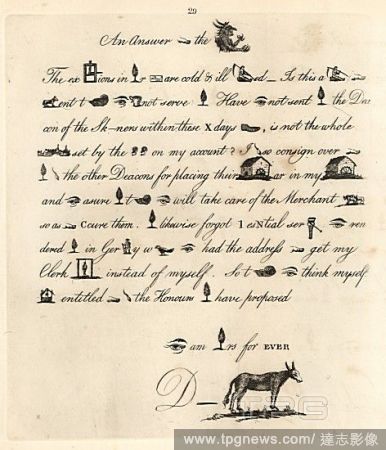 29
An Answer the
The ex ions in r are cold & ill ed_ Is this a
ent t not serve Have not sent the Dea
con of the Sk-ners within these X days , is not the whole
set by the on my account? so consign over
the other Deacons for placing their ar in my
and easure t will take care of the Merchant
so as ccure them. likewise forgot 1 ential ser ren
dered in Ger y w had the address get my
Clerk instead of myself. So t think myself
entitled the Honours have proposed
am rs for EVER
D_
www.tpgnews.com/達志影像